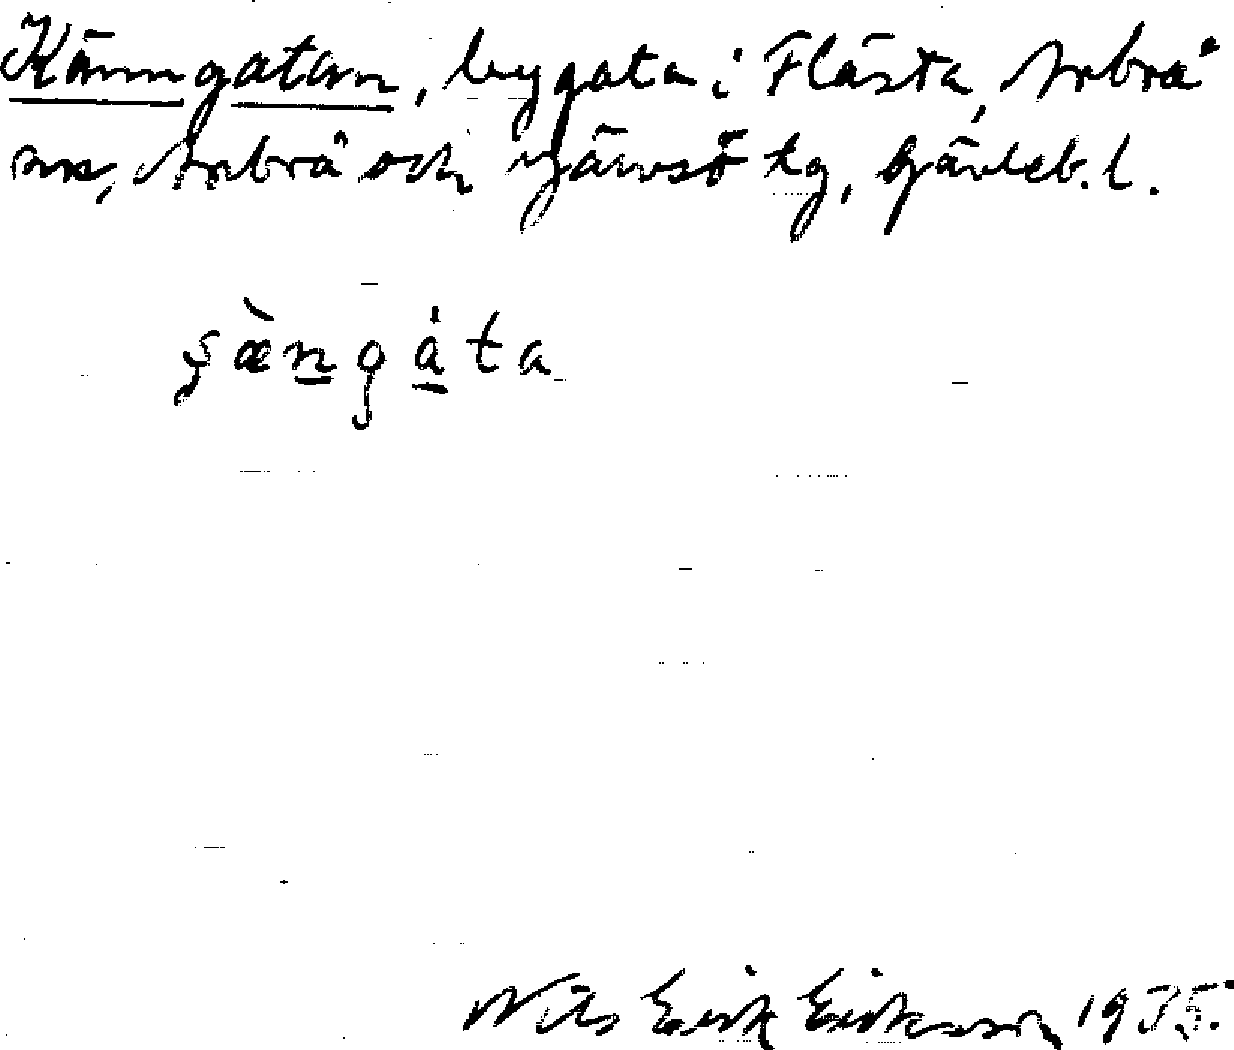 Känngatan, bygata i Flästa, Arbrå
sn, Arbrå och Järvsö tg, Gävleb. l.
şæ̀n̲gȧ̲ta
Nils Erik Eriksson 1935.